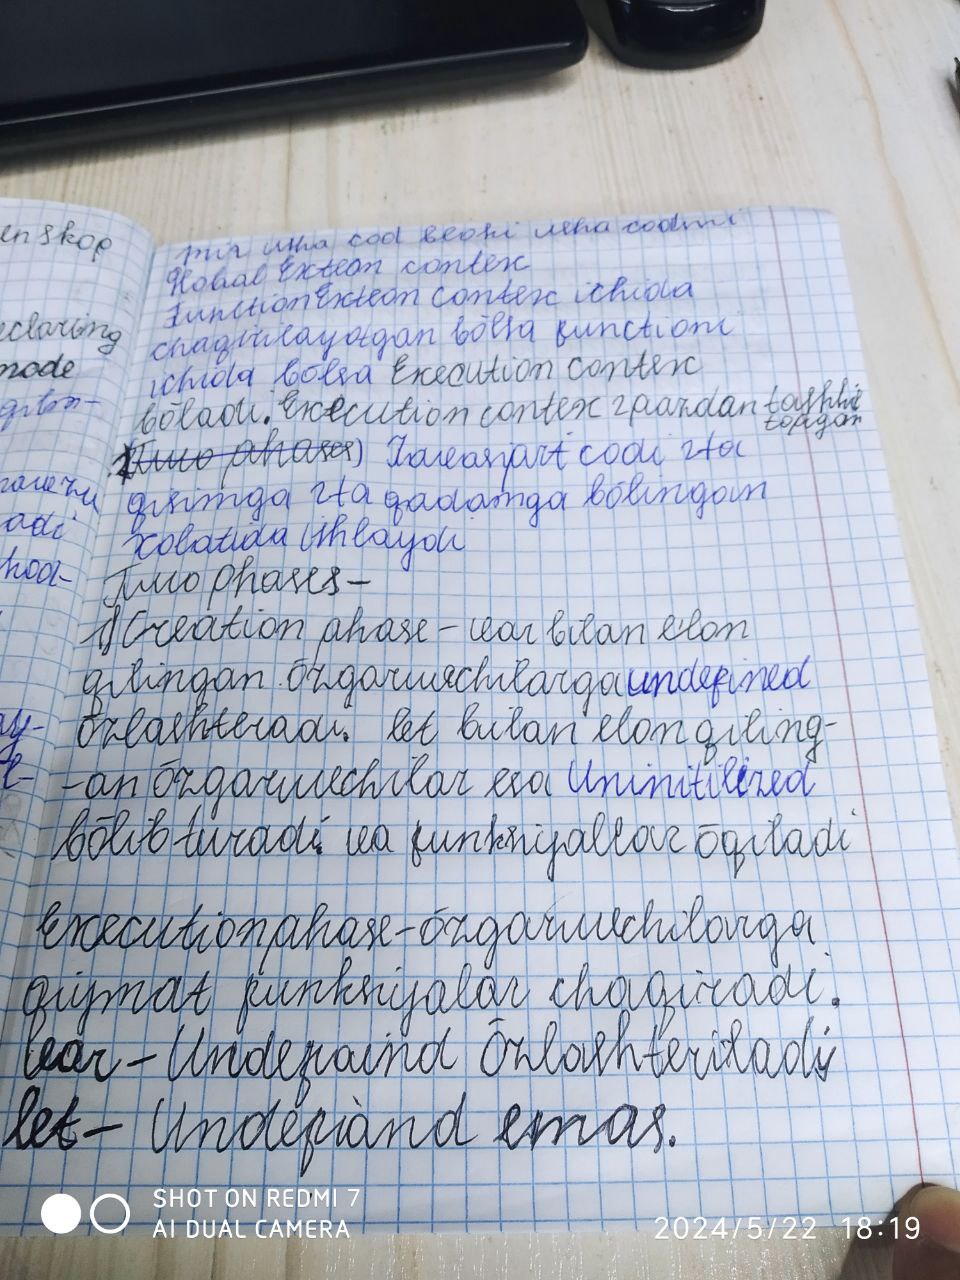 enskop
eclaring
node
qilin-
adi
hool-
ay-
usha cod usha codmi
Global Exteon contex
Function Exteon contex ichida
chaqirilayotgan bōlsa functioni
ichida bōlsa Execution contex
bōladi. Execution contex 2 tashki
topgan
Two phases) codi 2ta
qisimga 2ta qadamga bōlingan
xolatida ishlaydi
Two phases-
1) Creation phase - var bilan elon
qilingan ōzgaruvchilarga undefined
ōzlashteradi. let bilan elon qiling-
-an ōzgaruvchilar esa Uninitilized
bōlib turadi. va funksiyallar ōqiladi
Execution phase - ōzgaruvchilarga
qiymat funksiyalar chaqiradi.
var - Undefaind Ōzlashteriladi
let - Undefiand emas.
SHOT ON REDMI 7
AI DUAL CAMERA
2024/5/22 18:19